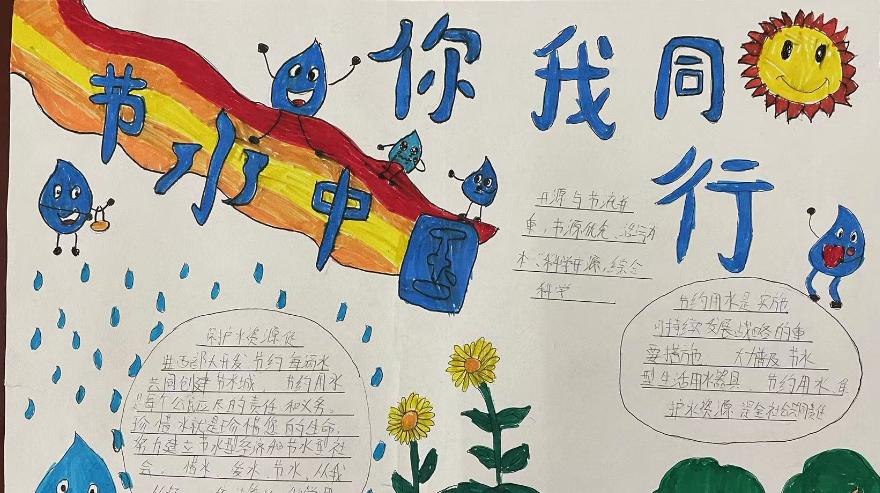 节水中国
你我同行
开源与节流并
重,节源优先、
本:科学开源,综合
科学
节约用水是实施
可持续发展战略的重
要措施 大力普及节水
型生活用水器具,节约用水、
护水资源 是全社会
保护水资源促
进西部大开发 节约每滴水
共同创建节水城, 节约用水
是每个公民应尽的责任和义务。
珍惜水就是珍惜您的生命。
努力建立节水型经济和节水型社
会, 惜水、爱水、节水,从我